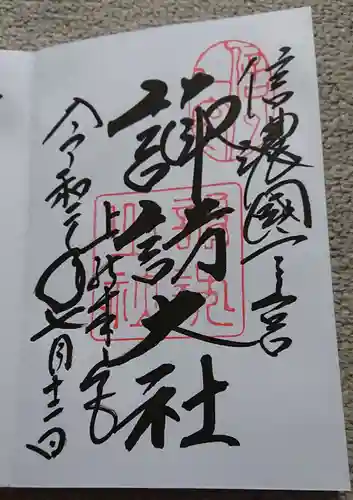 信濃國一之宮
諏訪大社
上社本宮
令和二年七月十二日